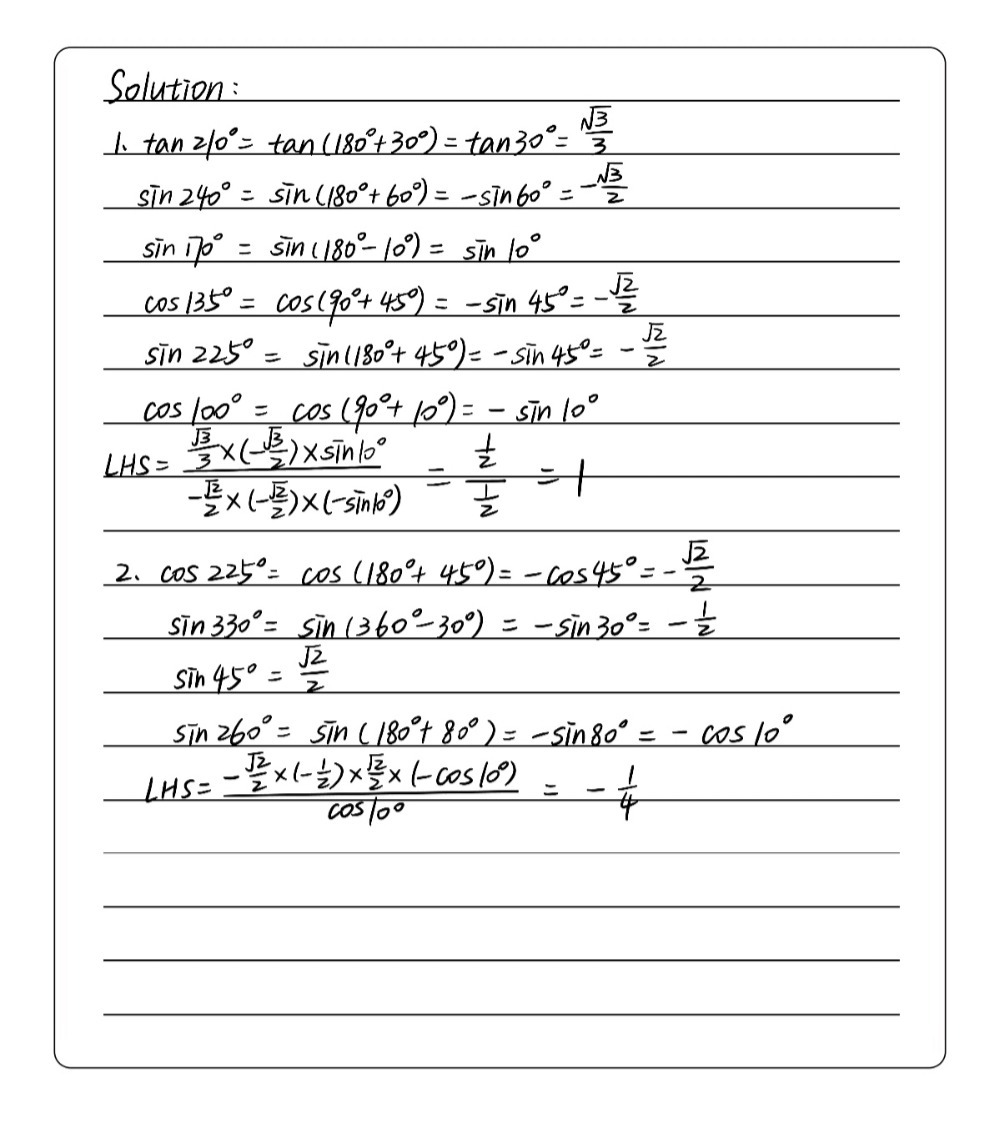 Solution:
1. tan 210° = tan(180°+30°) = tan30° = √3/3
sin 240° = sin(180°+60°) = -sin60° = -√3/2
sin 170° = sin(180°-10°) = sin 10°
cos 135° = cos(90°+45°) = -sin 45° = -√2/2
sin 225° = sin(180°+45°) = -sin 45° = -√2/2
cos 100° = cos(90°+10°) = -sin 10°
LHS = (√3/3 × (-√3/2) × sin10°)/(-√2/2 × (-√2/2) × (-sin10°)) = (1/2)/(1/2) = 1
2. cos 225° = cos(180°+45°) = -cos45° = -√2/2
sin 330° = sin(360°-30°) = -sin30° = -1/2
sin 45° = √2/2
sin 260° = sin(180°+80°) = -sin80° = -cos10°
LHS = (-√2/2 × (-1/2) × √2/2 × (-cos10°))/(cos10°) = -1/4